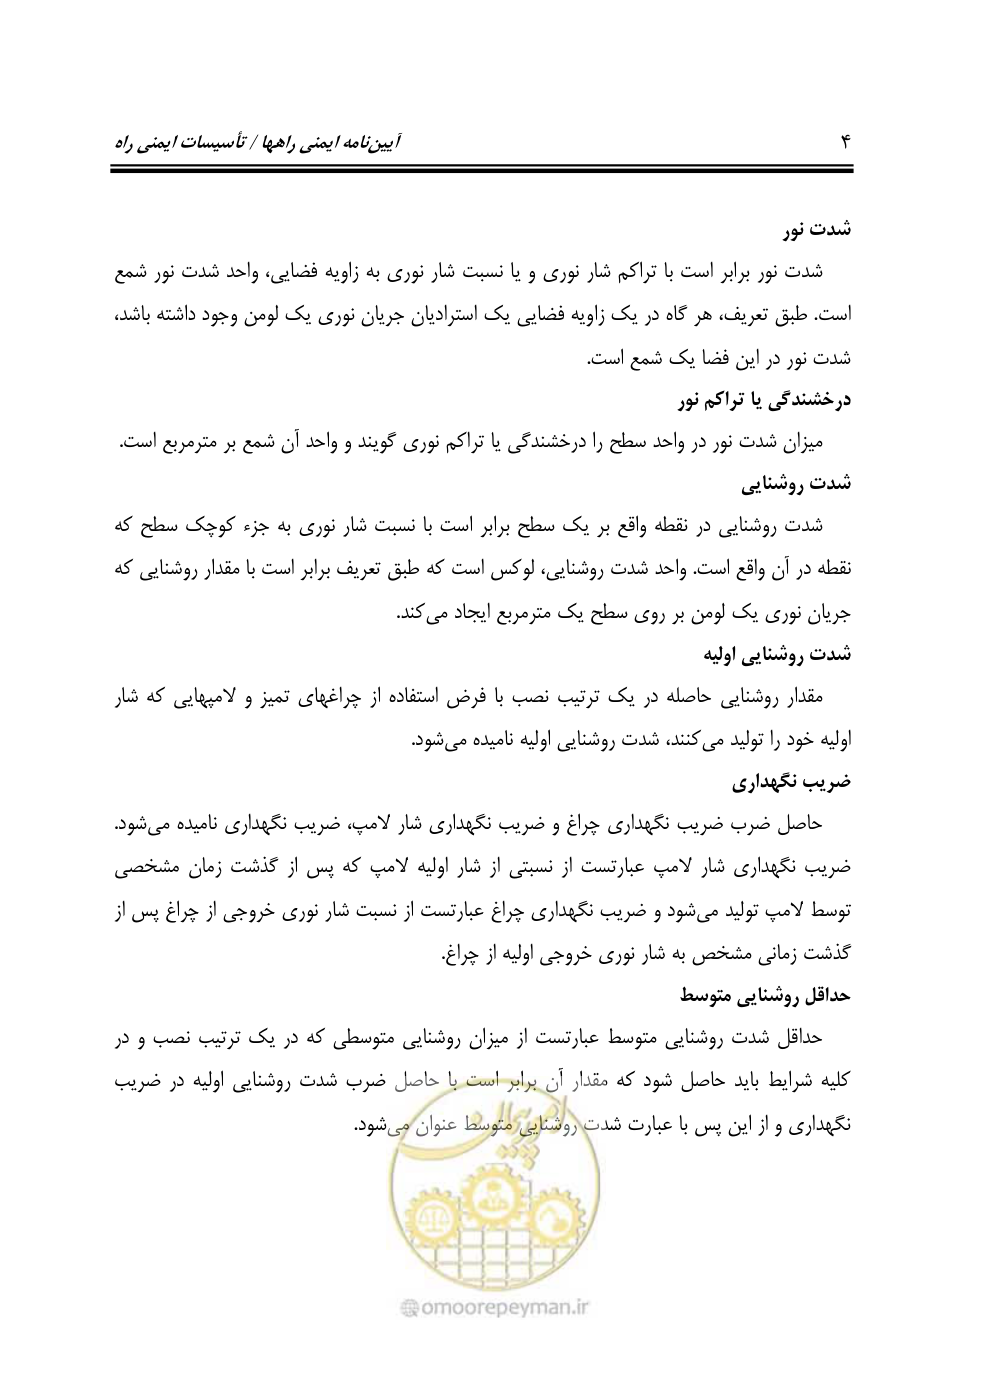 ۴
آیین‌نامه ایمنی راهها / تأسیسات ایمنی راه
شدت نور
شدت نور برابر است با تراکم شار نوری و یا نسبت شار نوری به زاویه فضایی، واحد شدت نور شمع
است. طبق تعریف، هر گاه در یک زاویه فضایی یک استرادیان جریان نوری یک لومن وجود داشته باشد،
شدت نور در این فضا یک شمع است.
درخشندگی یا تراکم نور
میزان شدت نور در واحد سطح را درخشندگی یا تراکم نوری گویند و واحد آن شمع بر مترمربع است.
شدت روشنایی
شدت روشنایی در نقطه واقع بر یک سطح برابر است با نسبت شار نوری به جزء کوچک سطح که
نقطه در آن واقع است. واحد شدت روشنایی، لوکس است که طبق تعریف برابر است با مقدار روشنایی که
جریان نوری یک لومن بر روی سطح یک مترمربع ایجاد می‌کند.
شدت روشنایی اولیه
مقدار روشنایی حاصله در یک ترتیب نصب با فرض استفاده از چراغهای تمیز و لامپهایی که شار
اولیه خود را تولید می‌کنند، شدت روشنایی اولیه نامیده می‌شود.
ضریب نگهداری
حاصل ضرب ضریب نگهداری چراغ و ضریب نگهداری شار لامپ، ضریب نگهداری نامیده می‌شود.
ضریب نگهداری شار لامپ عبارتست از نسبتی از شار اولیه لامپ که پس از گذشت زمان مشخصی
توسط لامپ تولید می‌شود و ضریب نگهداری چراغ عبارتست از نسبت شار نوری خروجی از چراغ پس از
گذشت زمانی مشخص به شار نوری خروجی اولیه از چراغ.
حداقل روشنایی متوسط
حداقل شدت روشنایی متوسط عبارتست از میزان روشنایی متوسطی که در یک ترتیب نصب و در
کلیه شرایط باید حاصل شود که مقدار آن برابر است با حاصل ضرب شدت روشنایی اولیه در ضریب
نگهداری و از این پس با عبارت شدت روشنایی متوسط عنوان می‌شود.
امور پیمان
@omoorepeyman.ir